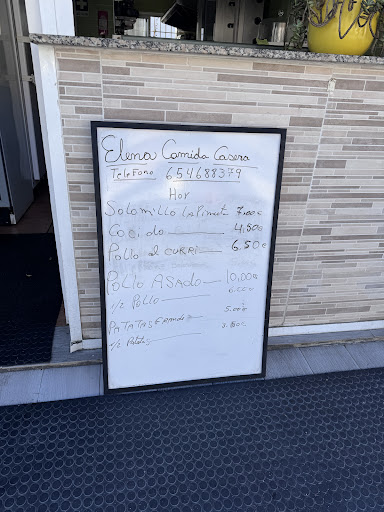 Elena Comida Casera
TeleFono 654688379
Hoy
Solomillo La Piment 7,00€
Cocido 4,50€
Pollo al CURRI 6.50€
Pollo ASADO 10,00€
1/2 Pollo
PATATAS GRANDE 5.00€
1/2 Patatas